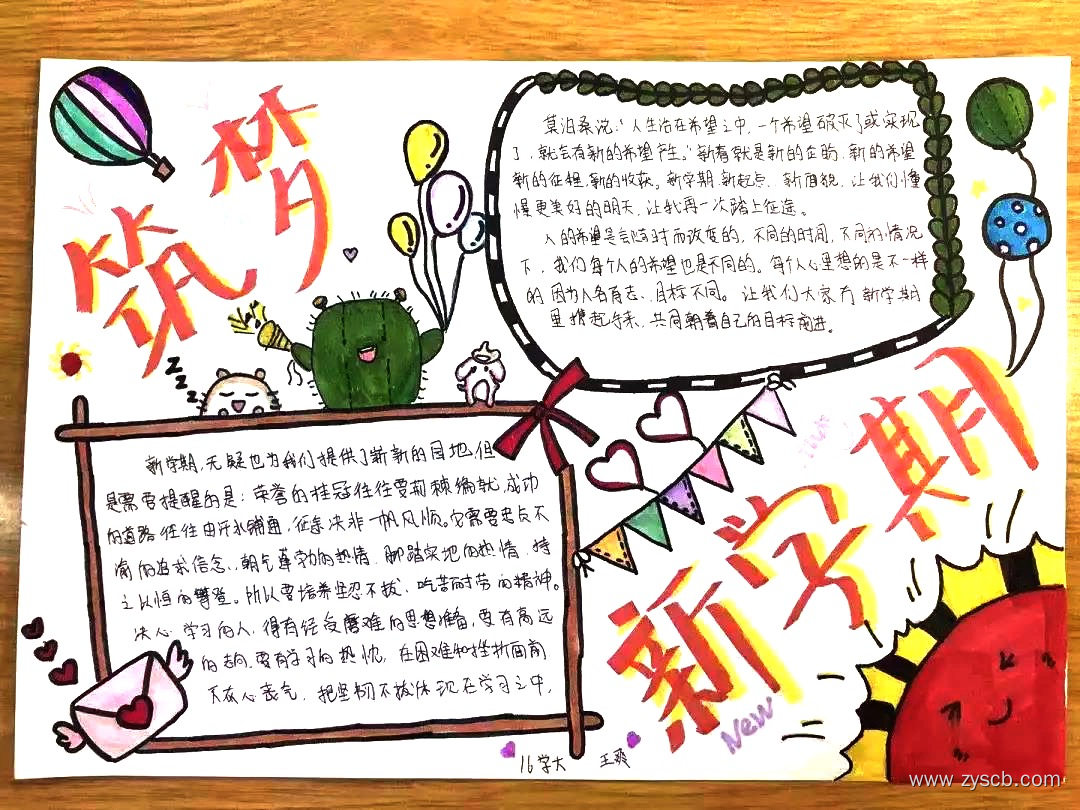 筑梦
莫泊桑说:“人生活在希望之中,一个希望破灭了或实现
了,就会有新的希望产生。”新春就是新的企盼,新的希望
新的征程,新的收获。新学期,新起点、新面貌,让我们憧
憬更美好的明天,让我再一次踏上征途。
人的希望是会随时而改变的,不同的时间,不同的情况
下,我们每个人的希望也是不同的。每个人心里想的是不一样
的 因为人各有志、目标不同。让我们大家在新学期
里携起手来,共同朝着自己的目标前进。
zzz
新学期,无疑也为我们提供了崭新的园地,但
是需要提醒的是:荣誉的桂冠往往要荆棘编就,成功
的道路往往由汗水铺通,征途决非一帆风顺。它需要忠贞不
渝的追求信念,朝气蓬勃的热情,脚踏实地的热情,持
之以恒的攀登。所以要培养坚忍不拔、吃苦耐劳的精神。
决心学习的人,得有经受磨难的思想准备,要有高远
的志向,要有学习的热忱,在困难和挫折面前
不灰心丧气,把坚韧不拔体现在学习之中,
新学期
New
16学大 王爽
www.zyscb.com